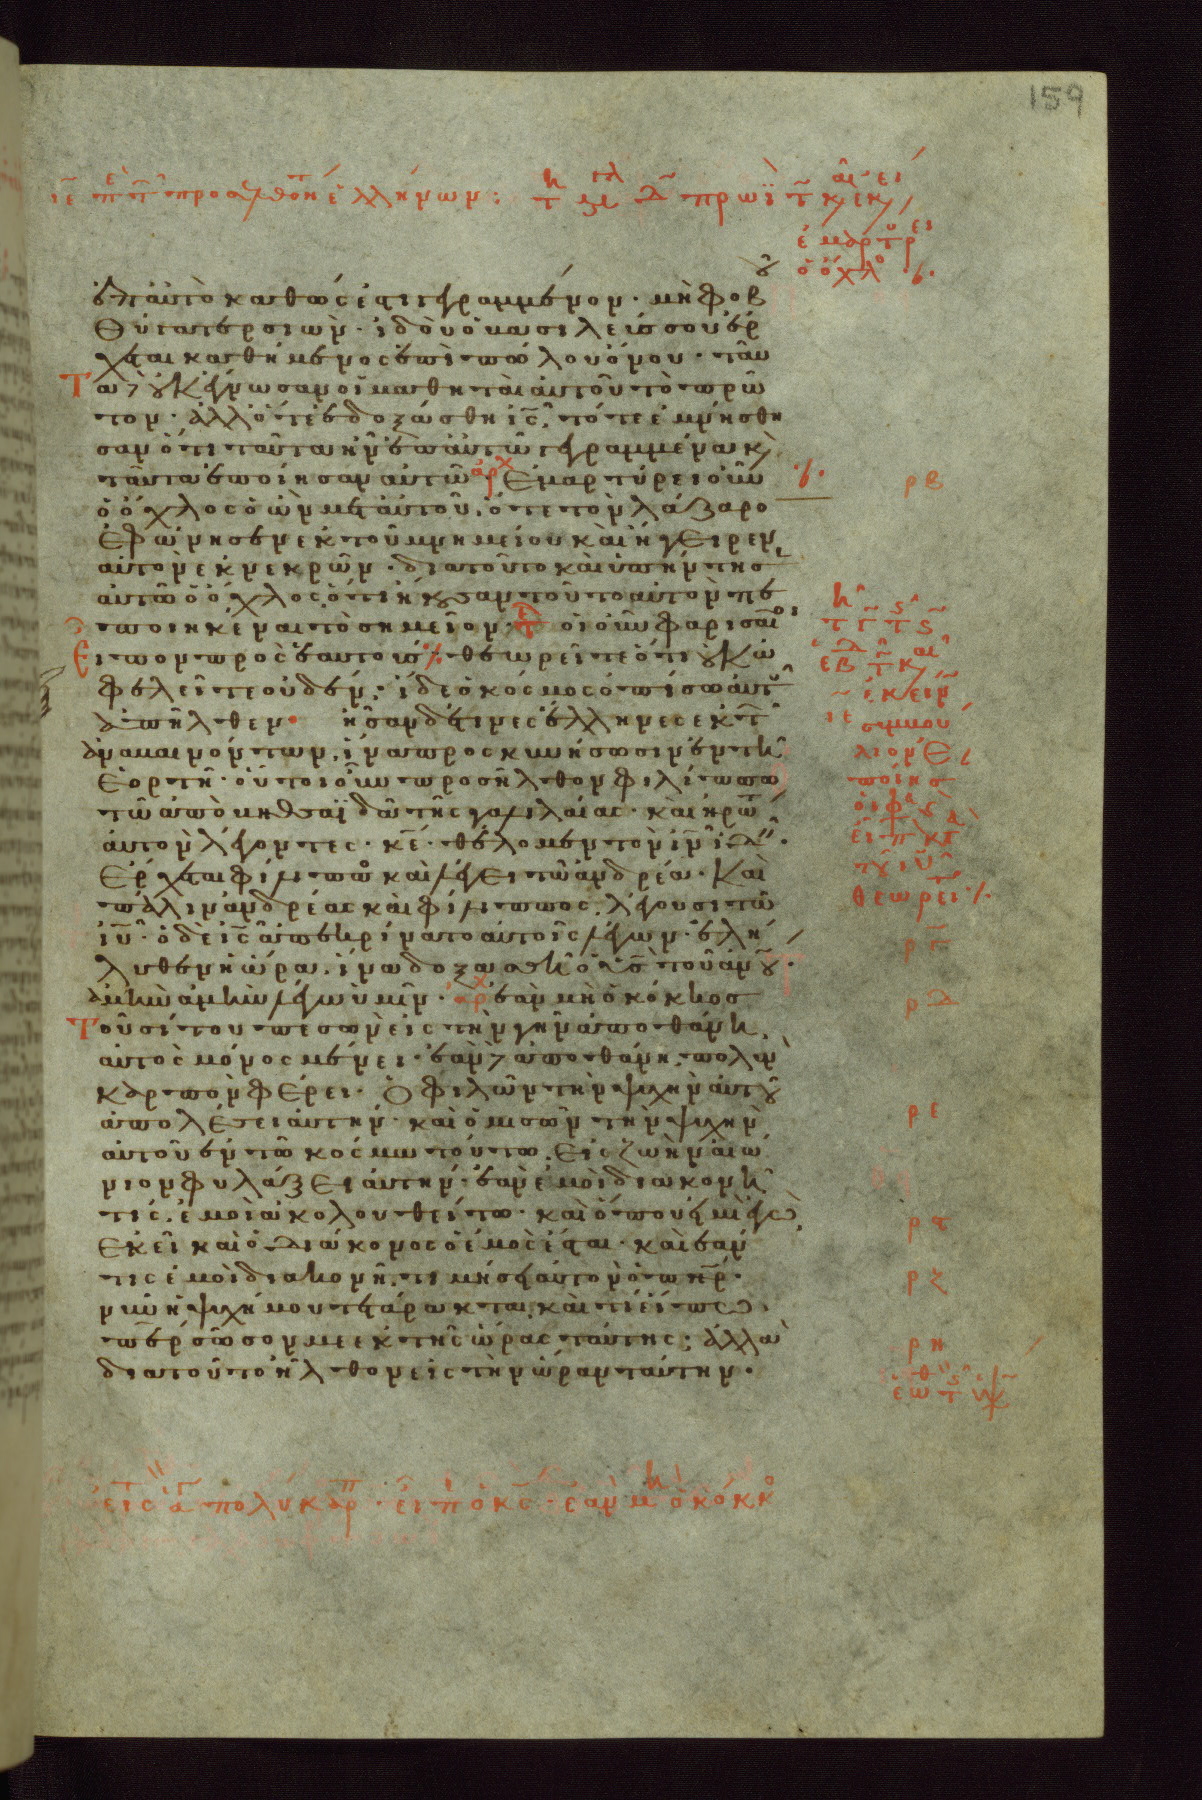 159
ιε περὶ τῶν προσελθόντων ἑλλήνων:
ἐμαρτύρει
ὁ ὄχλος
ἐπ αὐτὸ καθώς ἐστι γεγραμμένον · μὴ φοβοῦ
θύγατερ σιὼν · ἰδοὺ ὁ βασιλεύς σου ἔρ
χεται καθήμενος ἐπὶ πῶλον ὄνου · ταῦ
τα δὲ οὐκ ἔγνωσαν οἱ μαθηταὶ αὐτοῦ τὸ πρῶ
τον · ἀλλ ὅτε ἐδοξάσθη ις, τότε ἐμνήσθη
σαν ὅτι ταῦτα ἦν ἐπ αὐτῶ γεγραμμένα κ
ταῦτα ἐποίησαν αὐτῶ αρχ Ἐμαρτύρει οὖν
ὁ ὄχλος ὁ ὢν μετ αὐτοῦ, ὅτε τὸν λάζαρο
ἐφώνησεν ἐκ τοῦ μνημείου καὶ ἤγειρεν
αὐτὸν ἐκ νεκρῶν · διατοῦτο καὶ ὑπήντησ
αὐτῶ ὁ ὄχλος, ὅτι ἤκουσαν τοῦτο αὐτὸν πε
ποιηκέναι τὸ σημεῖον · οἱ οὖν φαρισαῖοι
Εἶπον πρὸς ἑαυτούς · θεωρεῖτε ὅτι οὐκ ὠ
φελεῖτε οὐδέν · ἴδε ὁ κόσμος ὀπίσω αὐτοῦ
ἀπῆλθεν · ἦσαν δέ τινες ἕλληνες ἐκ τῶν
ἀναβαινόντων, ἵνα προσκυνήσωσιν ἐν τῆ
ἑορτῆ · οὗτοι οὖν προσῆλθον φιλίππω
τῶ ἀπὸ βηθσαϊδὰ τῆς γαλιλαίας · καὶ ἠρώτων
αὐτὸν λέγοντες · κε · θέλομεν τὸν ιν ἰδεῖν ·
Ἔρχεται φίλιππος καὶ λέγει τῶ ἀνδρέα · Καὶ
πάλιν ἀνδρέας καὶ φίλιππος, λέγουσι τῶ
ιυ · ὁ δὲ ις ἀπεκρίνατο αὐτοῖς λέγων · ἐλή
λυθεν ἡ ὥρα, ἵνα δοξασθῆ ὁ υς τοῦ ανου ·
ἀμὴν ἀμὴν λέγω ὑμῖν · αρχ ἐὰν μὴ ὁ κόκκος
Τοῦ σίτου πεσὼν εἰς τὴν γῆν ἀποθάνη,
αὐτὸς μόνος μένει · ἐὰν δὲ ἀποθάνη, πολὺν
καρπὸν φέρει · Ὁ φιλῶν τὴν ψυχὴν αὐτοῦ
ἀπολέσει αὐτήν · καὶ ὁ μισῶν τὴν ψυχὴν
αὐτοῦ ἐν τῶ κόσμω τούτω, εἰς ζωὴν αἰώ
νιον φυλάξει αὐτήν · ἐὰν ἐμοὶ διακονῆ
τις, ἐμοὶ ἀκολουθείτω · καὶ ὅπου εἰμὶ ἐγὼ,
ἐκεῖ καὶ ὁ διάκονος ὁ ἐμὸς ἔσται · καὶ ἐάν
τις ἐμοὶ διακονῆ, τιμήσει αὐτὸν ὁ πηρ ·
νῦν ἡ ψυχή μου τετάρακται, καὶ τί εἴπω;
περ σῶσον με ἐκ τῆς ὥρας ταύτης; ἀλλὰ
διατοῦτο ἦλθον εἰς τὴν ὥραν ταύτην ·
ρβ
ργ
ρδ
ρε
ρϛ
ρζ
ρη
πολυκαρπ · εἶπ ὁ κς · ἐὰν μὴ ὁ κόκκο